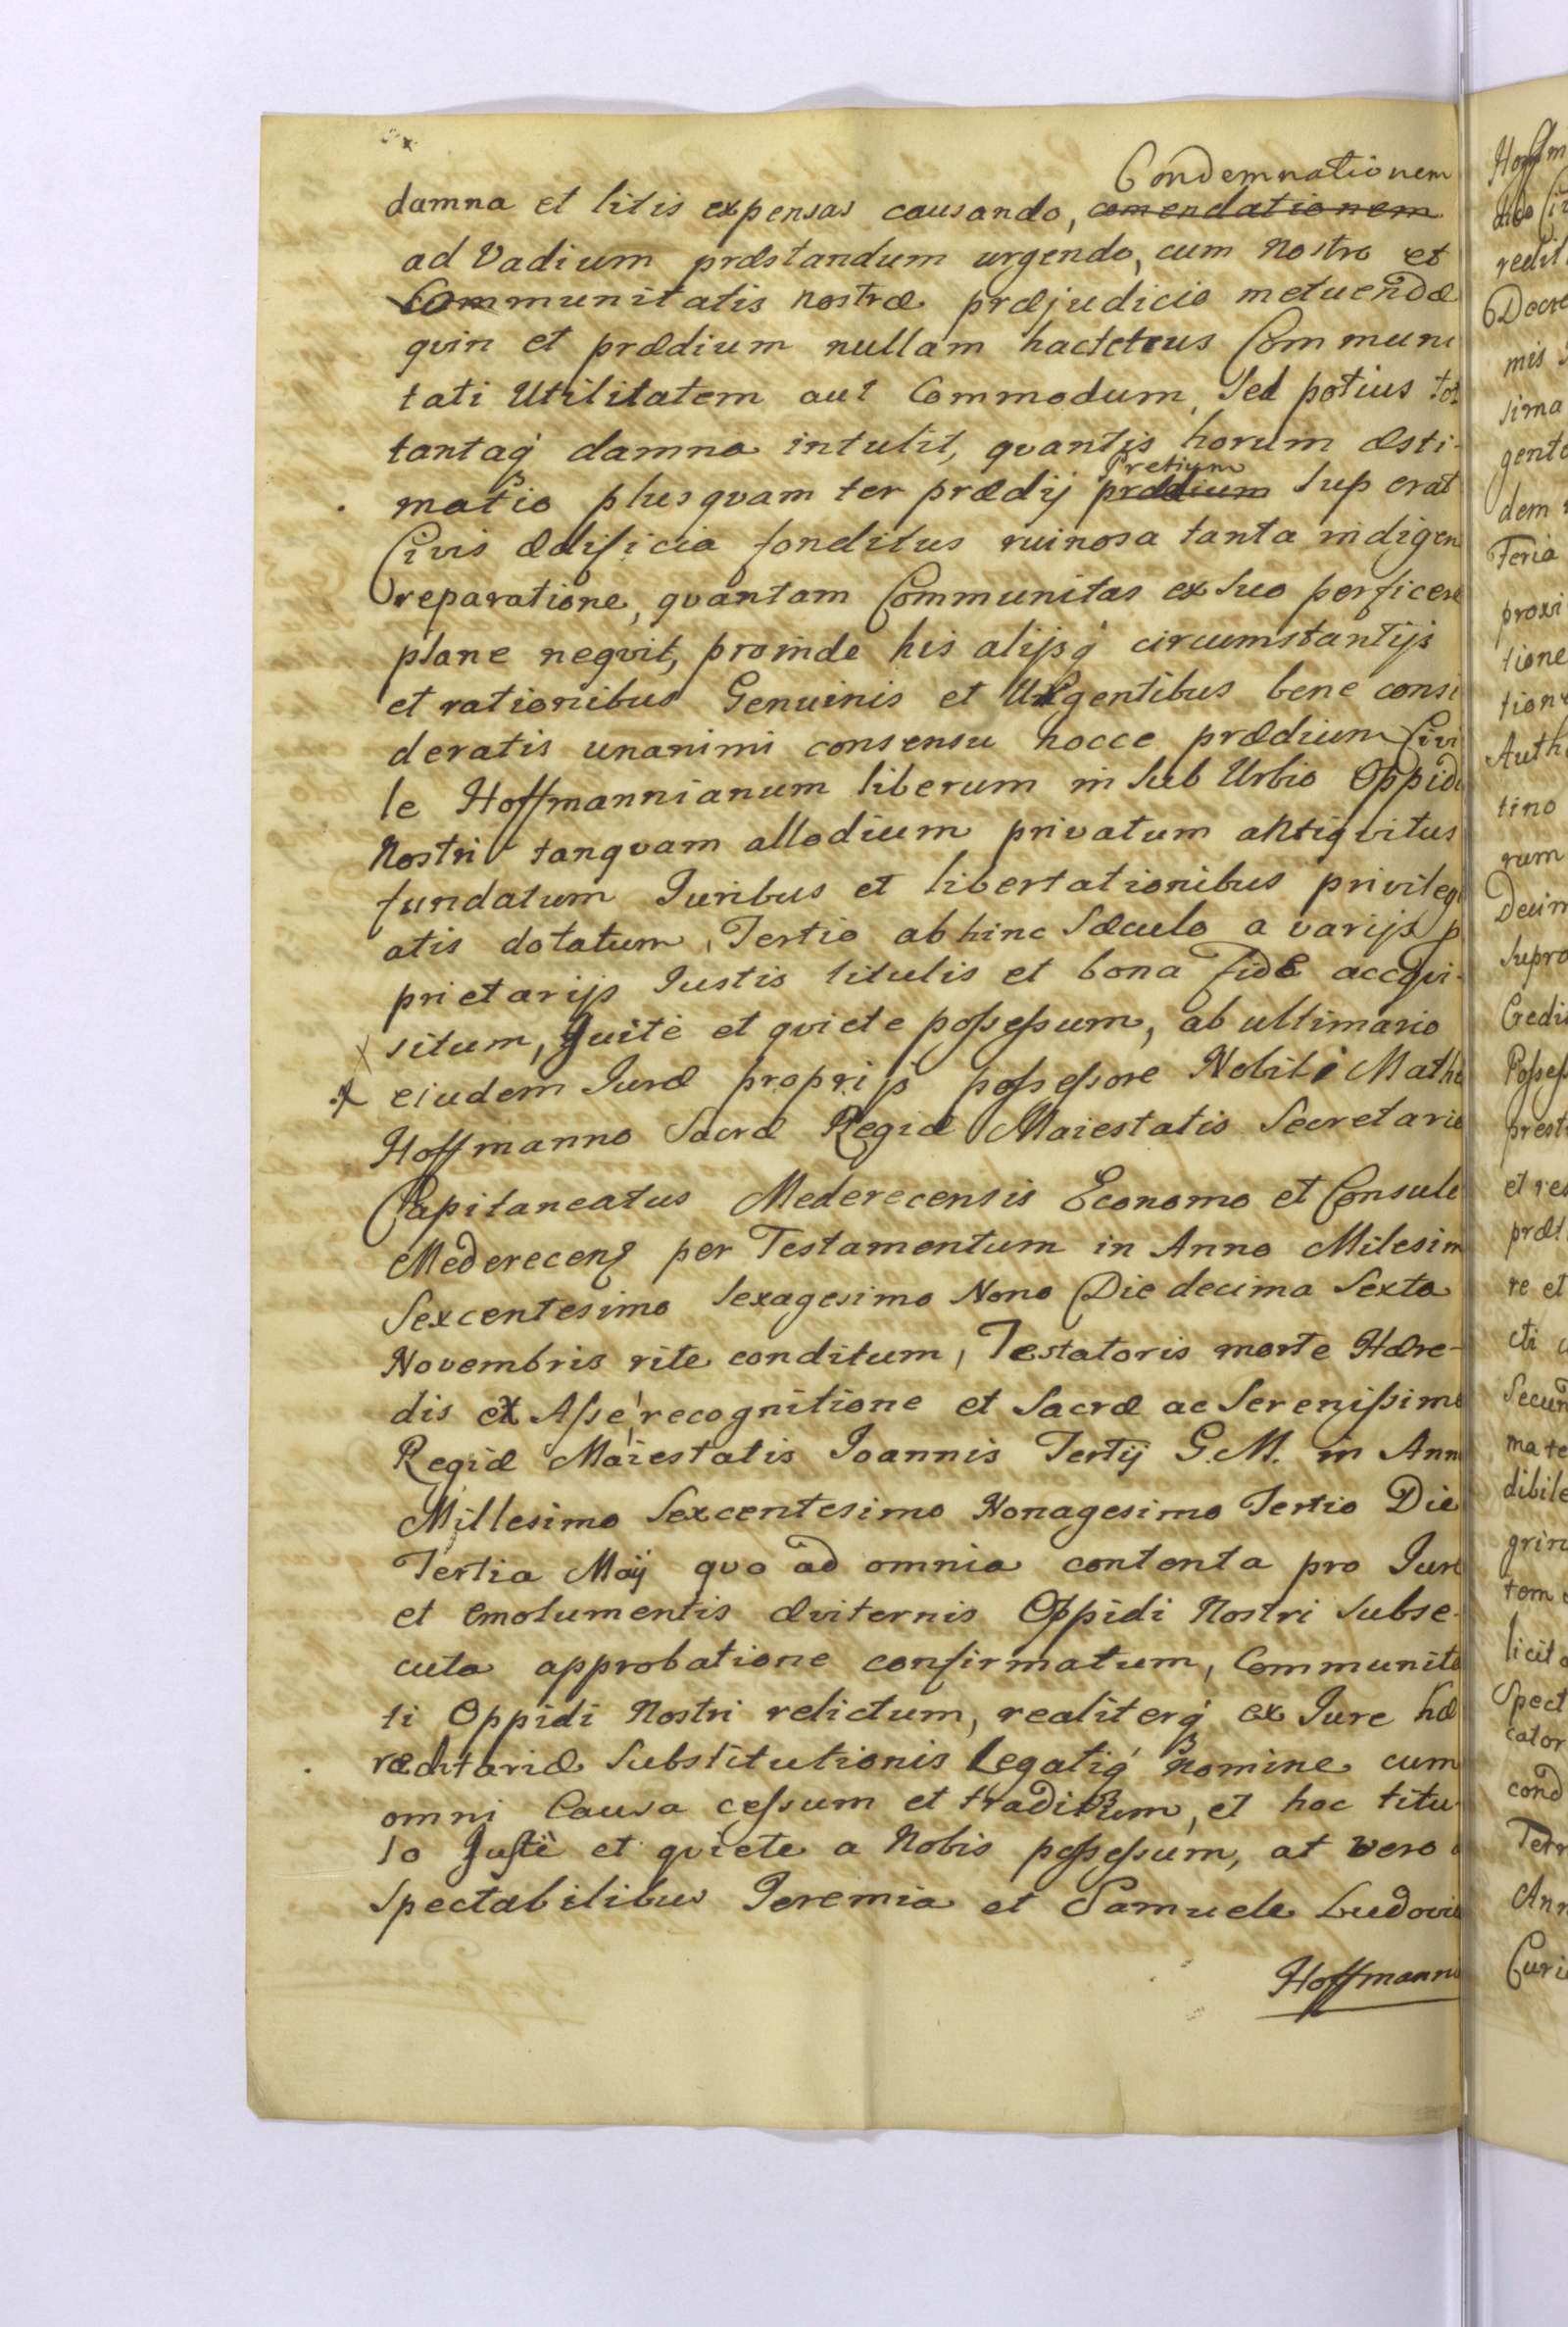 Condemnationem
damna et litis expensas causando, comendationem
ad Vadium præstandum urgendo, cum nostro et
Communitatis nostræ præjudicio metuendæ
quin et prædium nullam hactetrus Communi
tati Utilitatem aut Commodum, sed potius tot
tantaq damna intulit, quantis horum æsti-
Pretium
matio plusquam ter prædij prædium superat
Civis ædificia fonditus ruinosa tanta indigen
reparatione, quantam Communitas ex suo perficere
plane nequit, proinde his alijsq circumstantijs
et rationibus Genuinis et Urgentibus bene consi
deratis unanimi consensu hocce prædium Civi
le Hoffmannianum liberum in Sub Urbio Oppidi
Nostri tanquam allodium privatum antiquitus
fundatum Juribus et libertationibus privilegi
atis dotatum, Tertio abhinc Sæculo a varijs p
prietarijs Justis titulis et bona Fide accqui-
situm, quite et quiete possessum, ab ultimario
eiudem Juræ proprijs possessore Nobili Mathe
Hoffmanno Sacræ Regiæ Maiestatis Secretario
Capitaneatus Mederecensis Economo et Consule
Medereceng per Testamentum in Anno Milesim
Sexcentesimo Sexagesimo Nono Die decima Sexta
Novembris rite conditum, Testatoris morte Hære-
dis ex Asse recognitione et Sacræ ac Serenissimæ
Regiæ Maiestatis Joannis Tertij G.M. in Ann
Millesimo Sexcentesimo Nonagesimo Tertio Die
Tertia Maij quo ad omnia contenta pro Jure
et emolumentis æviternis Oppidi Nostri Subse-
cuta approbatione confirmatum, Communita
ti Oppidi Nostri relictum, realiterq ex Jure hæ
ræditariæ Substitutionis Legatiq nomine cum
omni Causa cessum et traditum, et hoc titu
lo Juste et quiete a Nobis possessum, at vero
Spectabilibus Jeremia et Samuele Ludovic
Hoffmanno